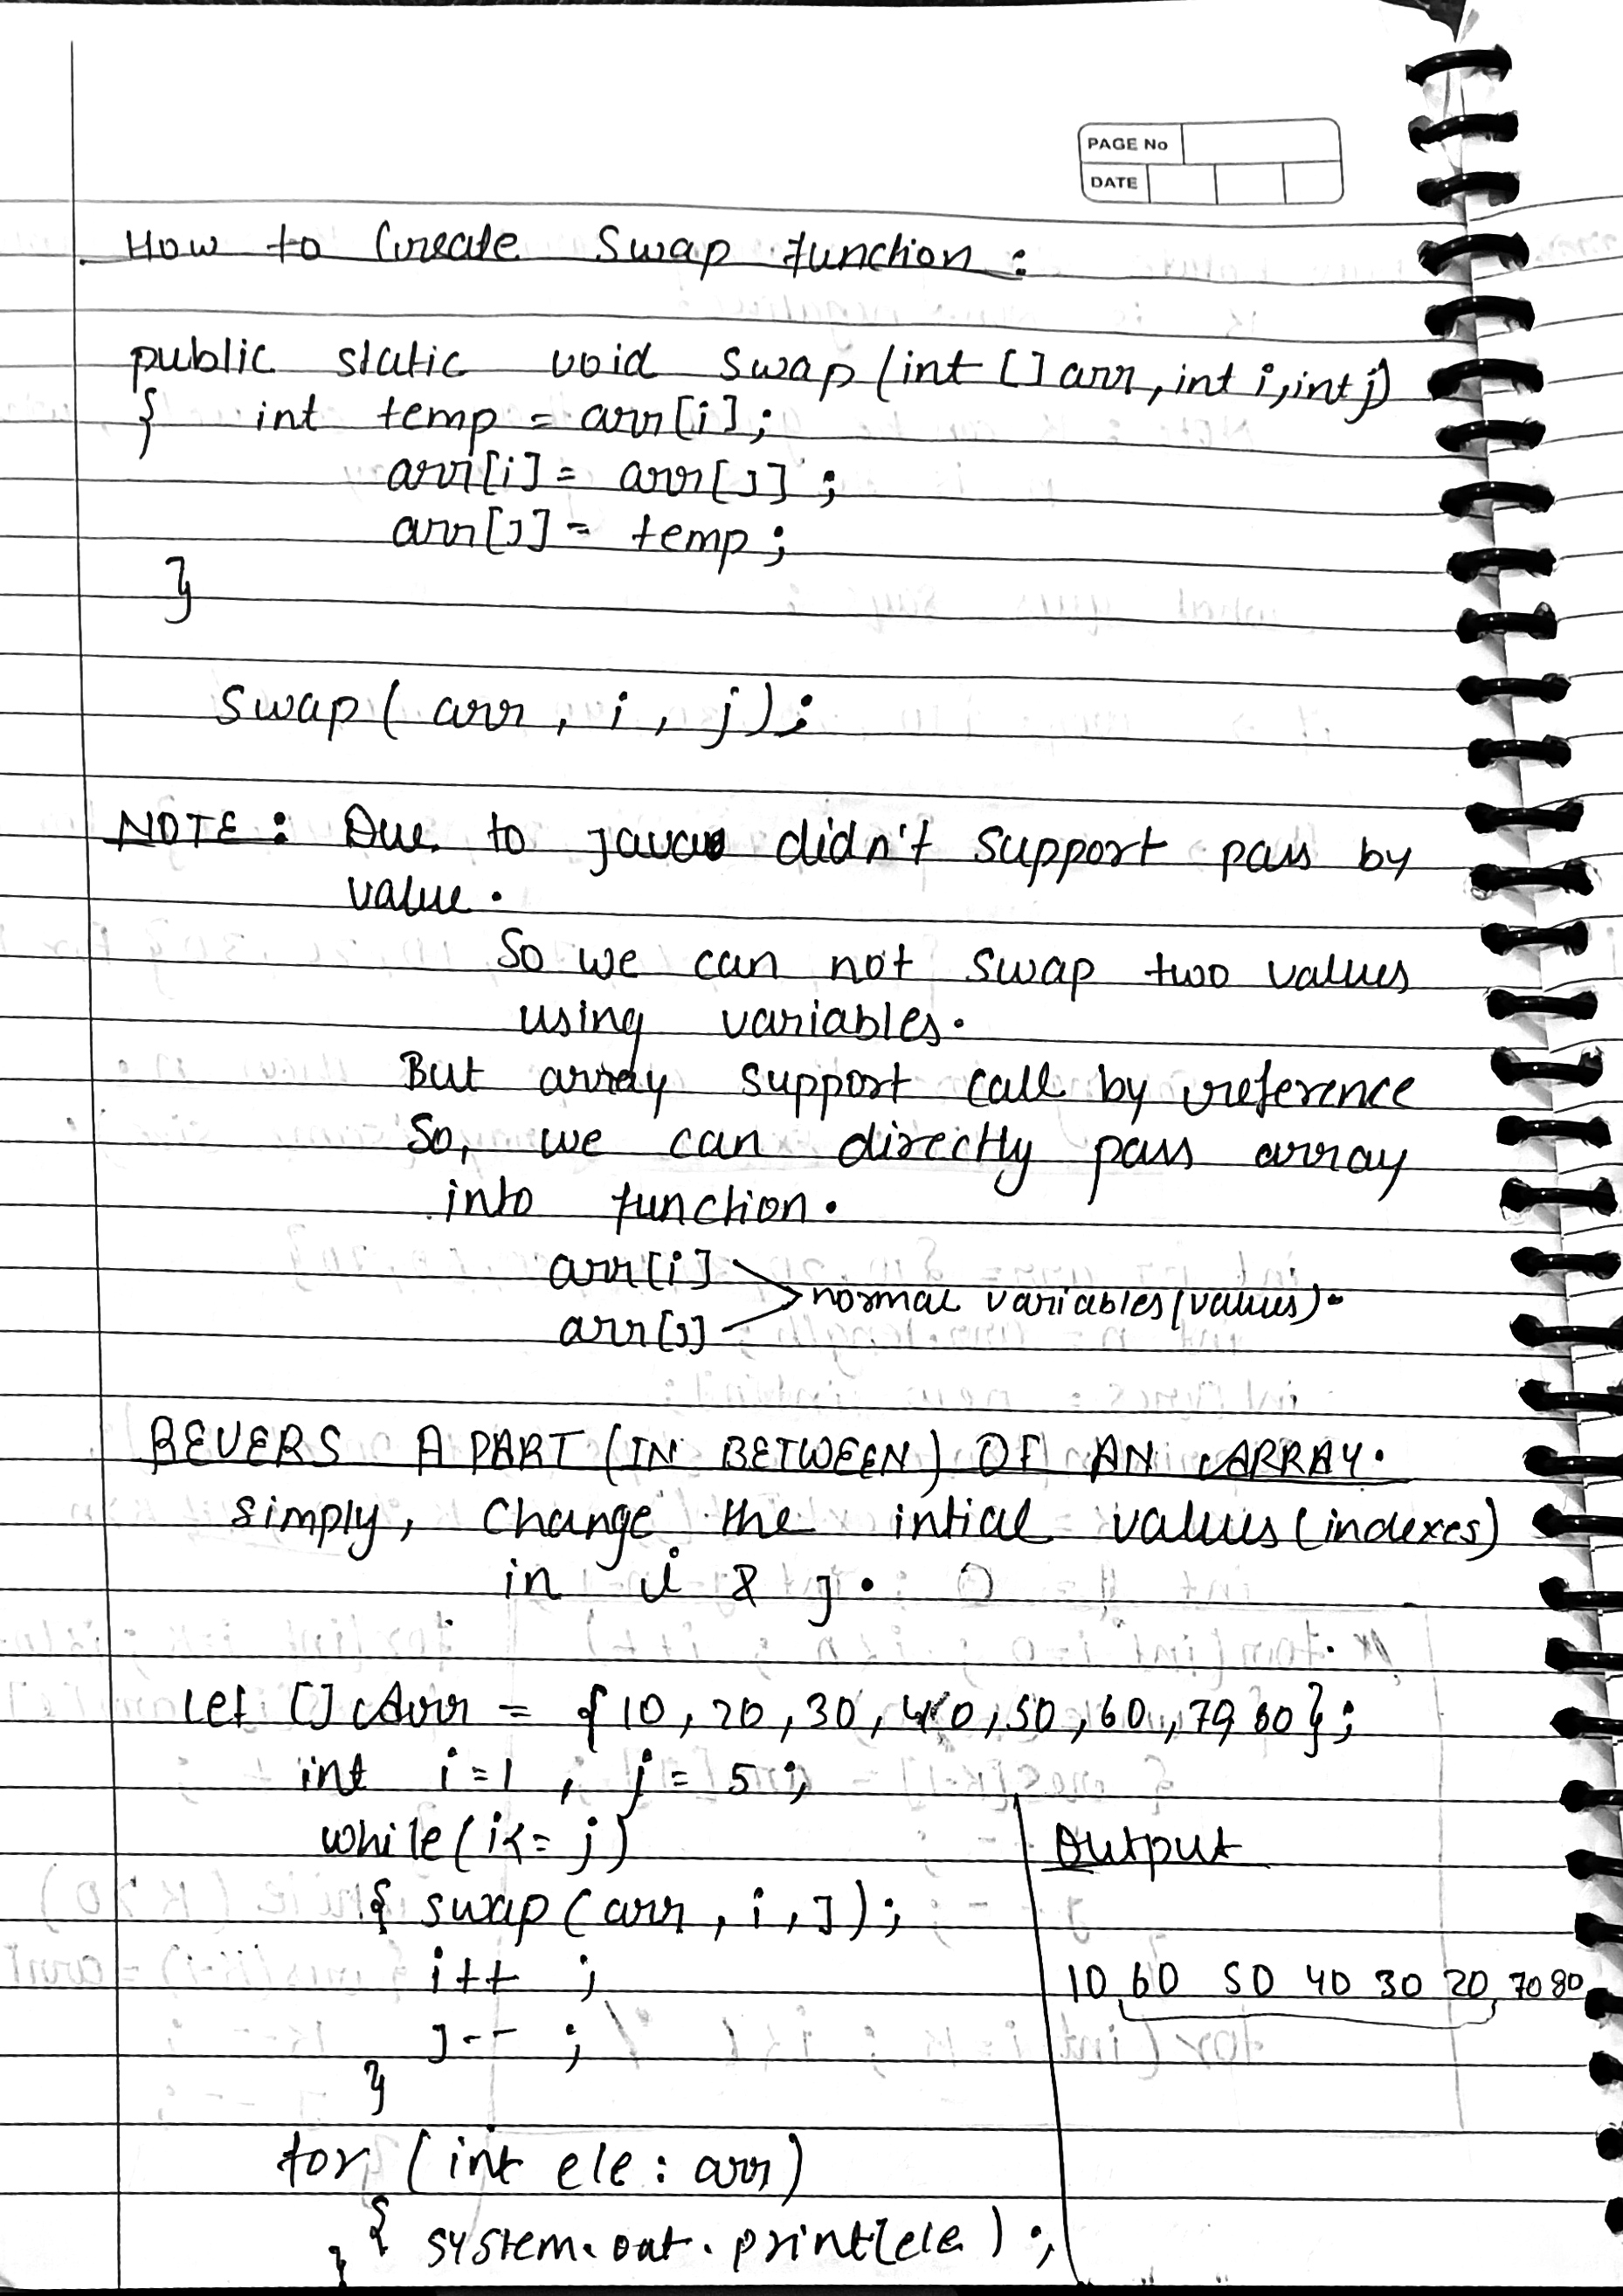 PAGE No
DATE
How to Create Swap function :
public static void Swap (int [] arr, int i, int j)
{ int temp = arr[i];
arr[i] = arr[j] ;
arr[j] = temp ;
}
Swap ( arr , i , j ) ;
NOTE : Due to java didn't support pass by
value .
So we can not swap two values
using variables .
But array support call by reference
So, we can directly pass array
into function .
arr[i]
normal variables (values) .
arr[j]
REVERS A PART (IN BETWEEN) OF AN ARRAY .
simply , Change the intial values (indexes)
in i & j .
Let [] Arr = {10 , 20 , 30 , 40 , 50 , 60 , 70, 80} ;
int i = 1 , j = 5 ;
while ( i <= j )
Output
{ swap ( arr , i , j ) ;
i++ ;
10 60 50 40 30 20, 70 80
j-- ;
}
for ( int ele : arr )
{ system.out.print(ele) ;
}